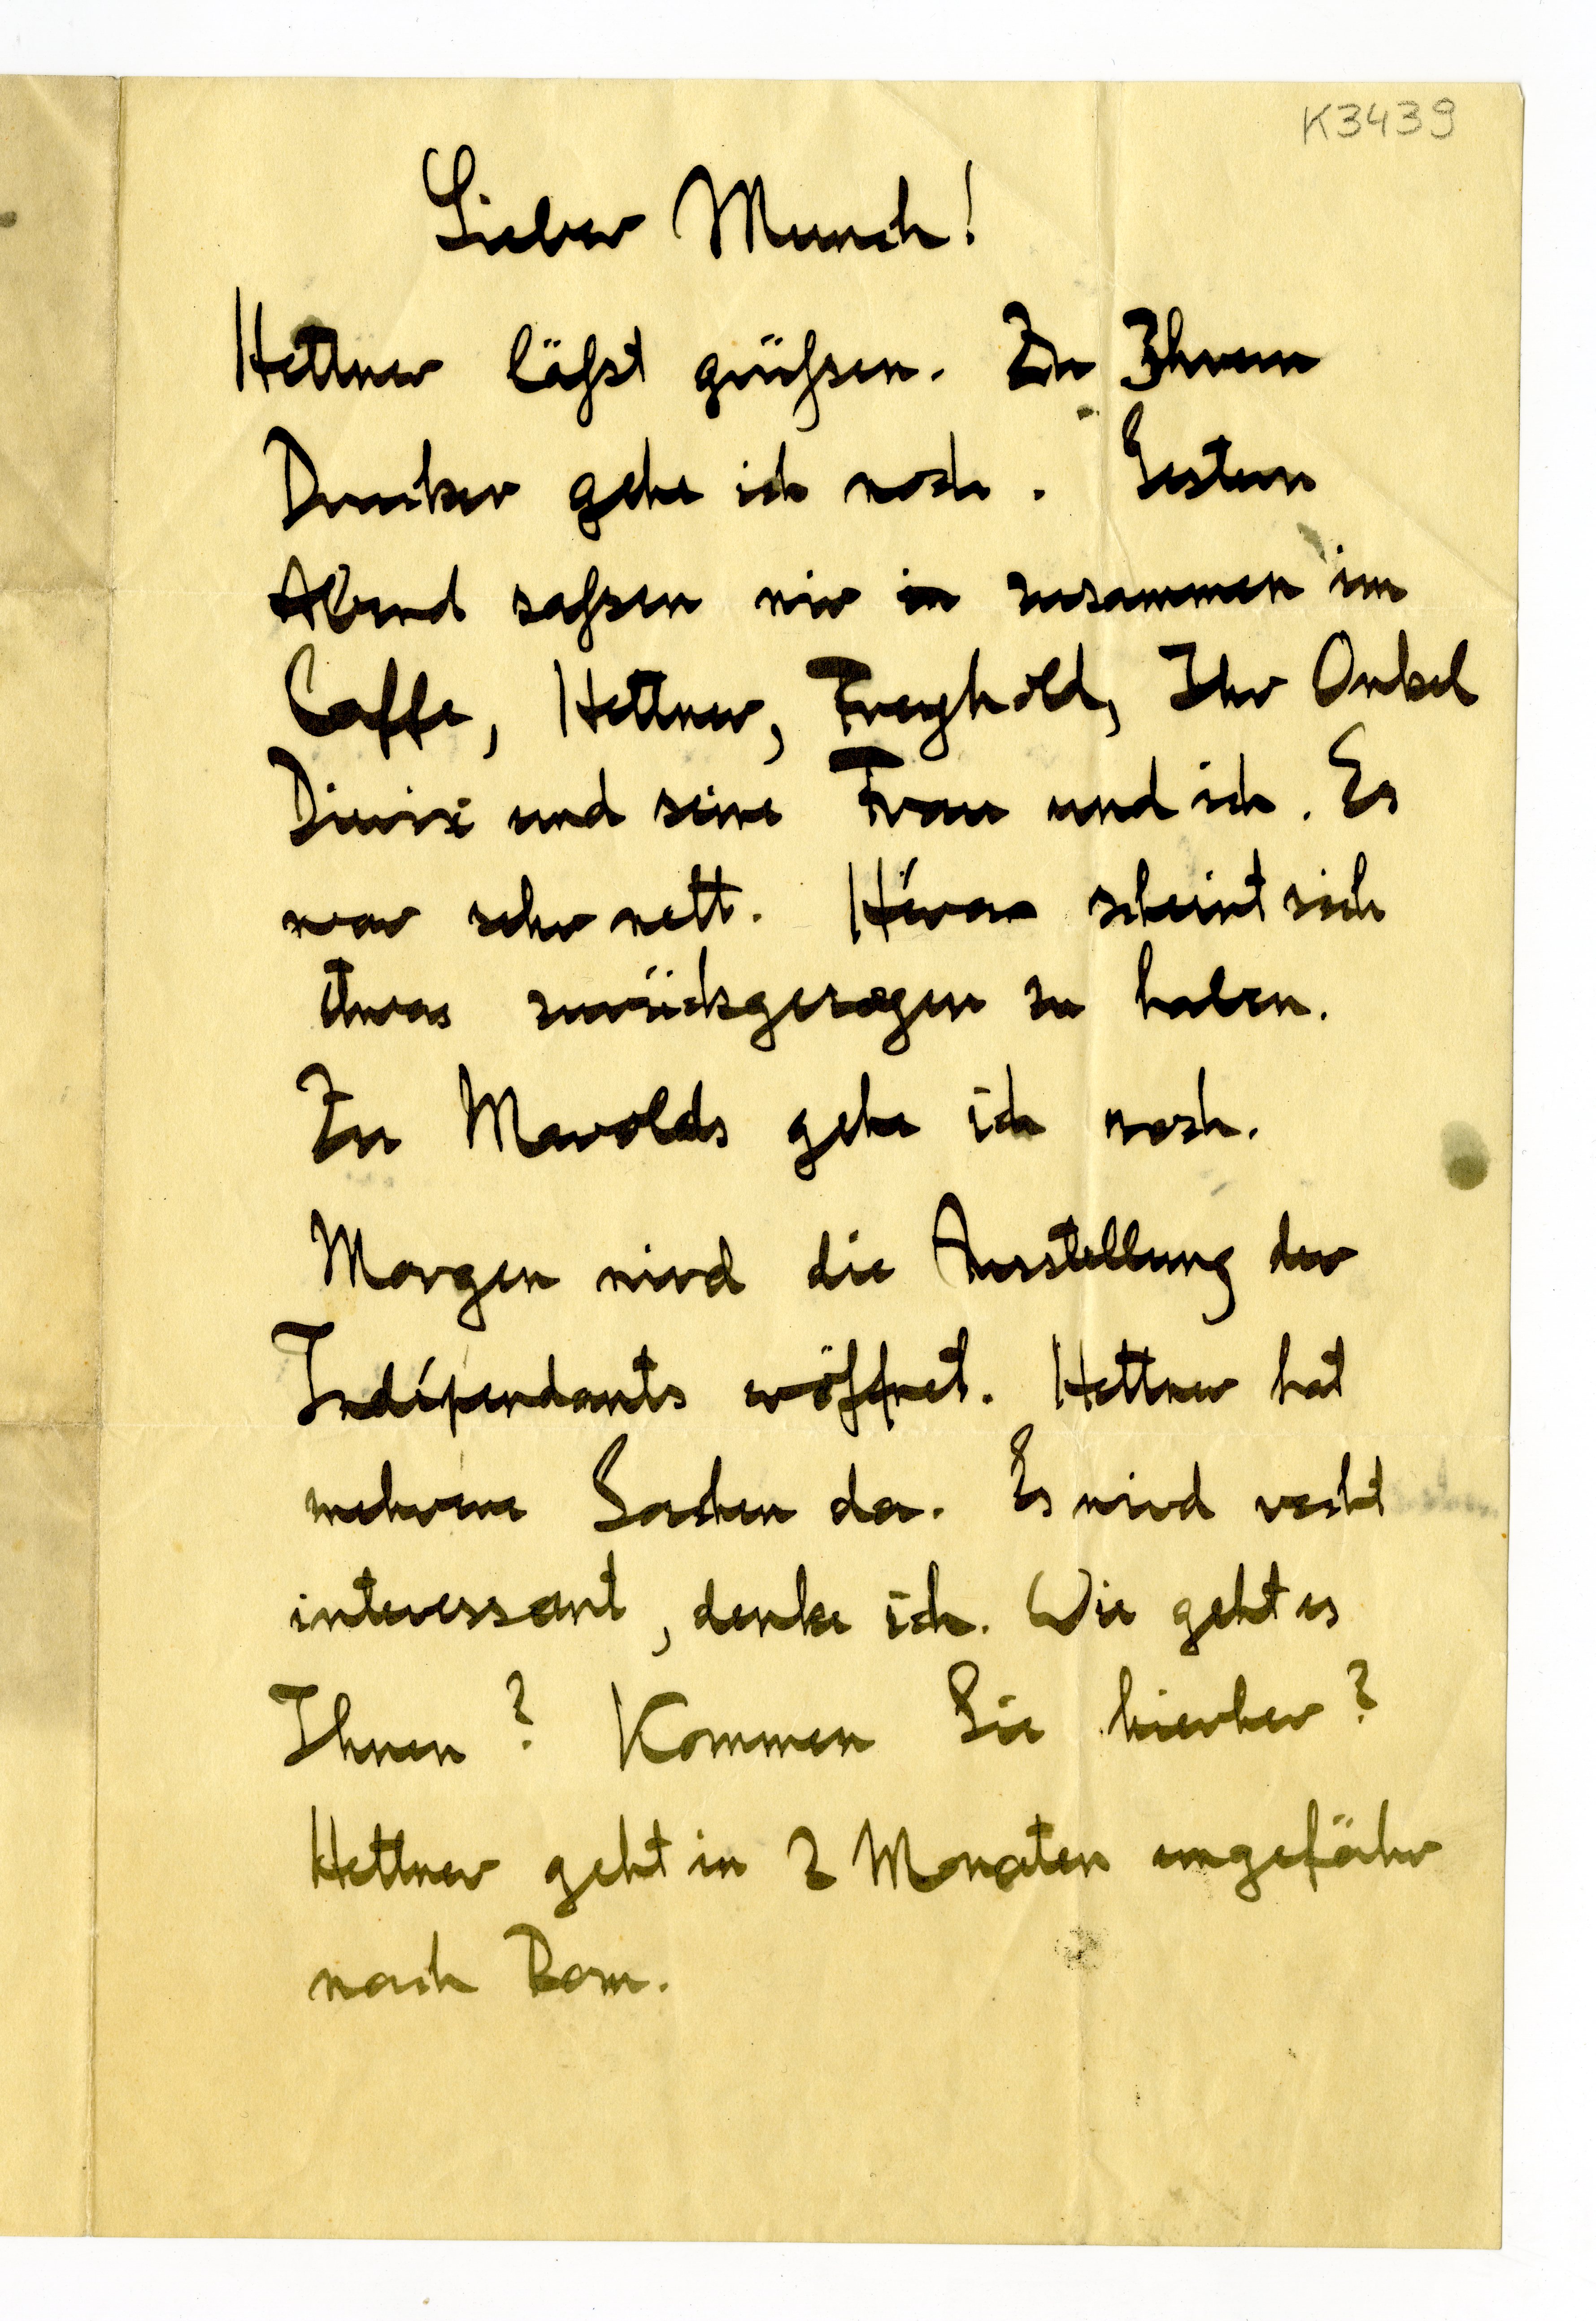 K3439
Lieber Munch!
Hettner läßt grüßen. Zu Ihrem
Drucker gehe ich noch. Gestern
Abend saßen wir in zusammen im
Caffe, Hettner, Freyhold, Ihr Onkel
Diwix und seine Frau und ich. Es
war sehr nett. scheint sich
etwas zurückgezogen zu haben.
Zu Marolds gehe ich noch.
Morgen wird die Ausstellung der
Indépendants eröffnet. Hettner hat
mehrere Sachen da. Es wird recht
interessant, denke ich. Wie geht es
Ihnen? Kommen Sie hierher?
Hettner geht in 2 Monaten ungefähr
nach Rom.